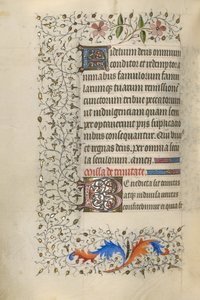 Fidelium deus omnium
conditor et redemptor a
nimabus famulorum famu
larumque tuarum remissione
cunctorum tribue peccatorum
ut indulgenciam quam sem
per optaverunt piis supplicatio
nibus consequantur. Qui vivis
et regnas deus. per omnia se
cula seculorum. amen.
Missa de trinitate
Benedicta sit sancta trinitas
atque indivisa unitas
confitebimur ei quia fe